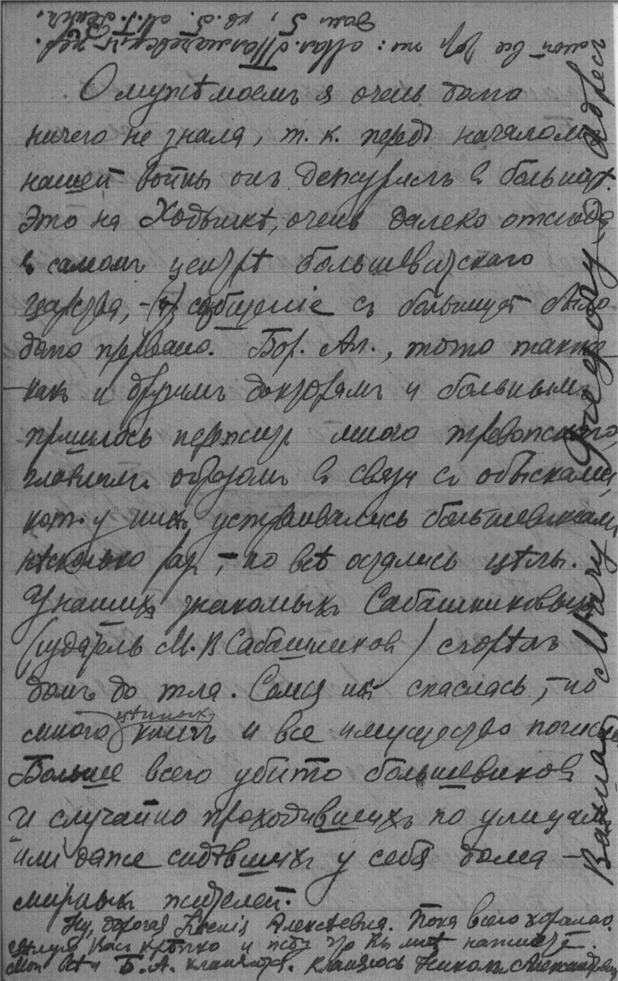 О мужѣ моемъ я очень долго
ничего не знала, т. к. передъ началомъ
нашей войны онъ дежурилъ въ больницѣ.
Это на Ходынкѣ, очень далеко отсюда
въ самомъ центрѣ большевитскаго
царства, – и сообщеніе съ больницей было
прервано. Бор. Ал., точно также
какъ и другимъ докторамъ и больнымъ
пришлось пережить много тревожнаго,
главнымъ образомъ въ связи съ обысками,
кот. у нихъ устраивались большевиками
нѣсколько разъ, – но всѣ остались цѣлы.
У нашихъ знакомыхъ Сабашниковыхъ
(издатель М. В Сабашников) сгорѣлъ
домъ до тла. Семья ихъ спаслась, – но
много цѣнныхъ книгъ и все имущество погибло.
Больше всего убито большевиковъ
и случайно проходившихъ по улицамъ
или даже сидѣвшихъ у себя дома –
мирныхъ жителей.
Ну, дорогая Алексѣевна. Пока всего хорошаго.
Цѣлую Васъ крѣпко и жду что Вы мнѣ напишете.
и Б. А. кланяются. Кланяюсь Александровичу
Ваша
адресъ